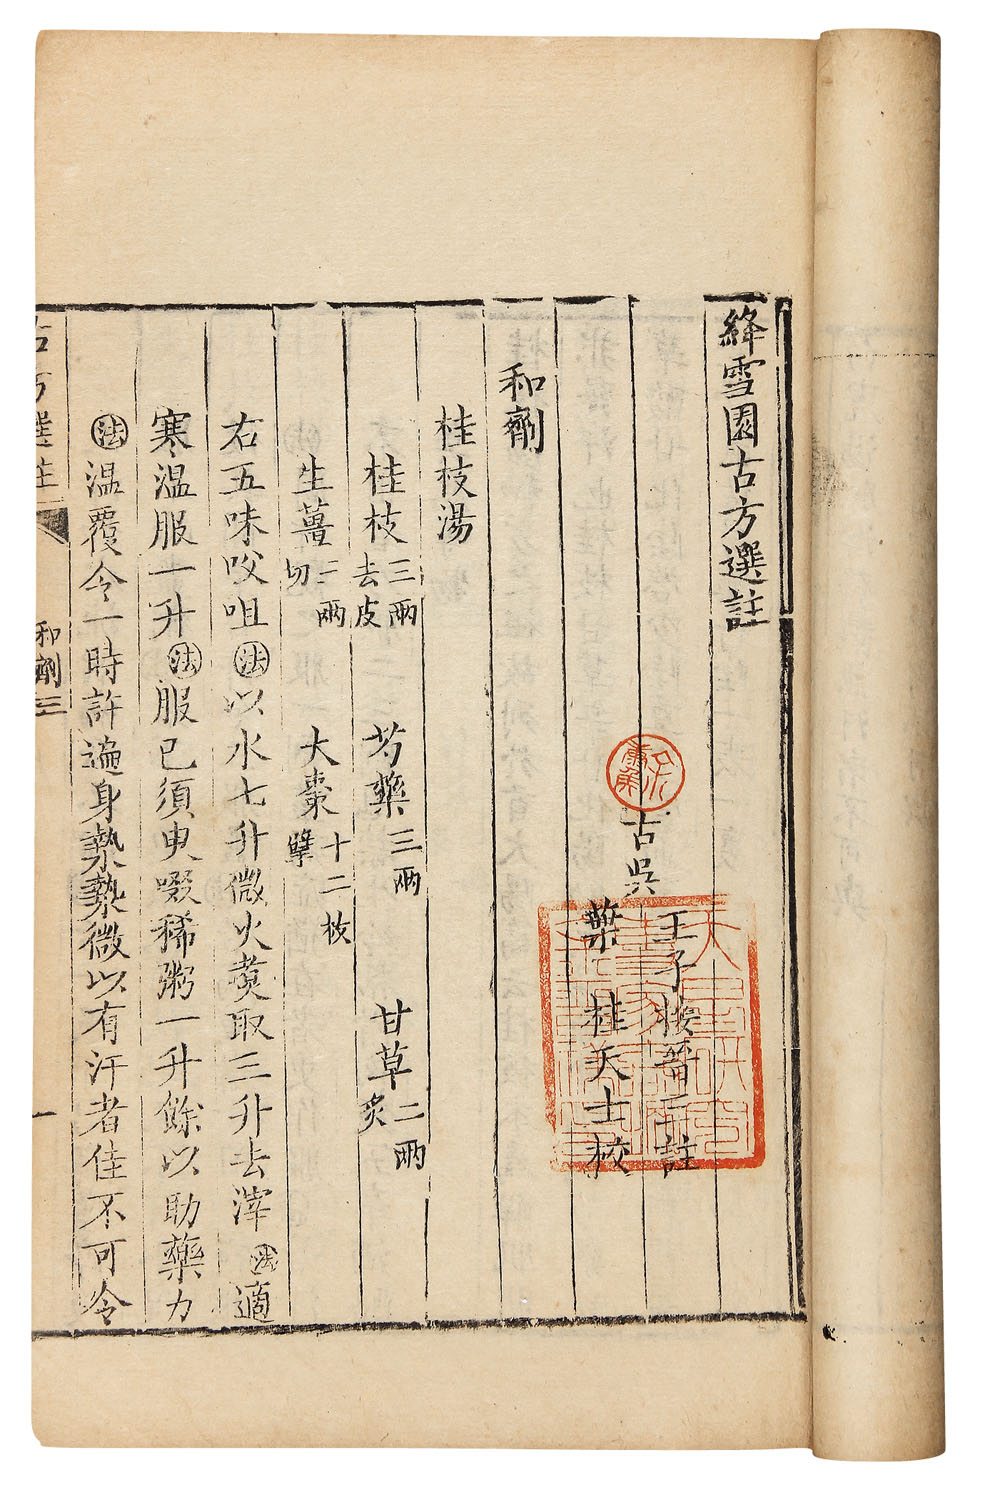 絳雪園古方選註
古吳
王子接晉三註
葉桂天士校
和劑
桂枝湯
桂枝三兩去皮 芍藥三兩 甘草二兩炙
生薑三兩切 大棗十二枚擘
右五味㕮咀法以水七升微火煑取三升去滓法適
寒溫服一升法服已須臾啜稀粥一升餘以助藥力
法溫覆令一時許遍身漐漐微以有汗者佳不可令
古方選註 和劑 三 一